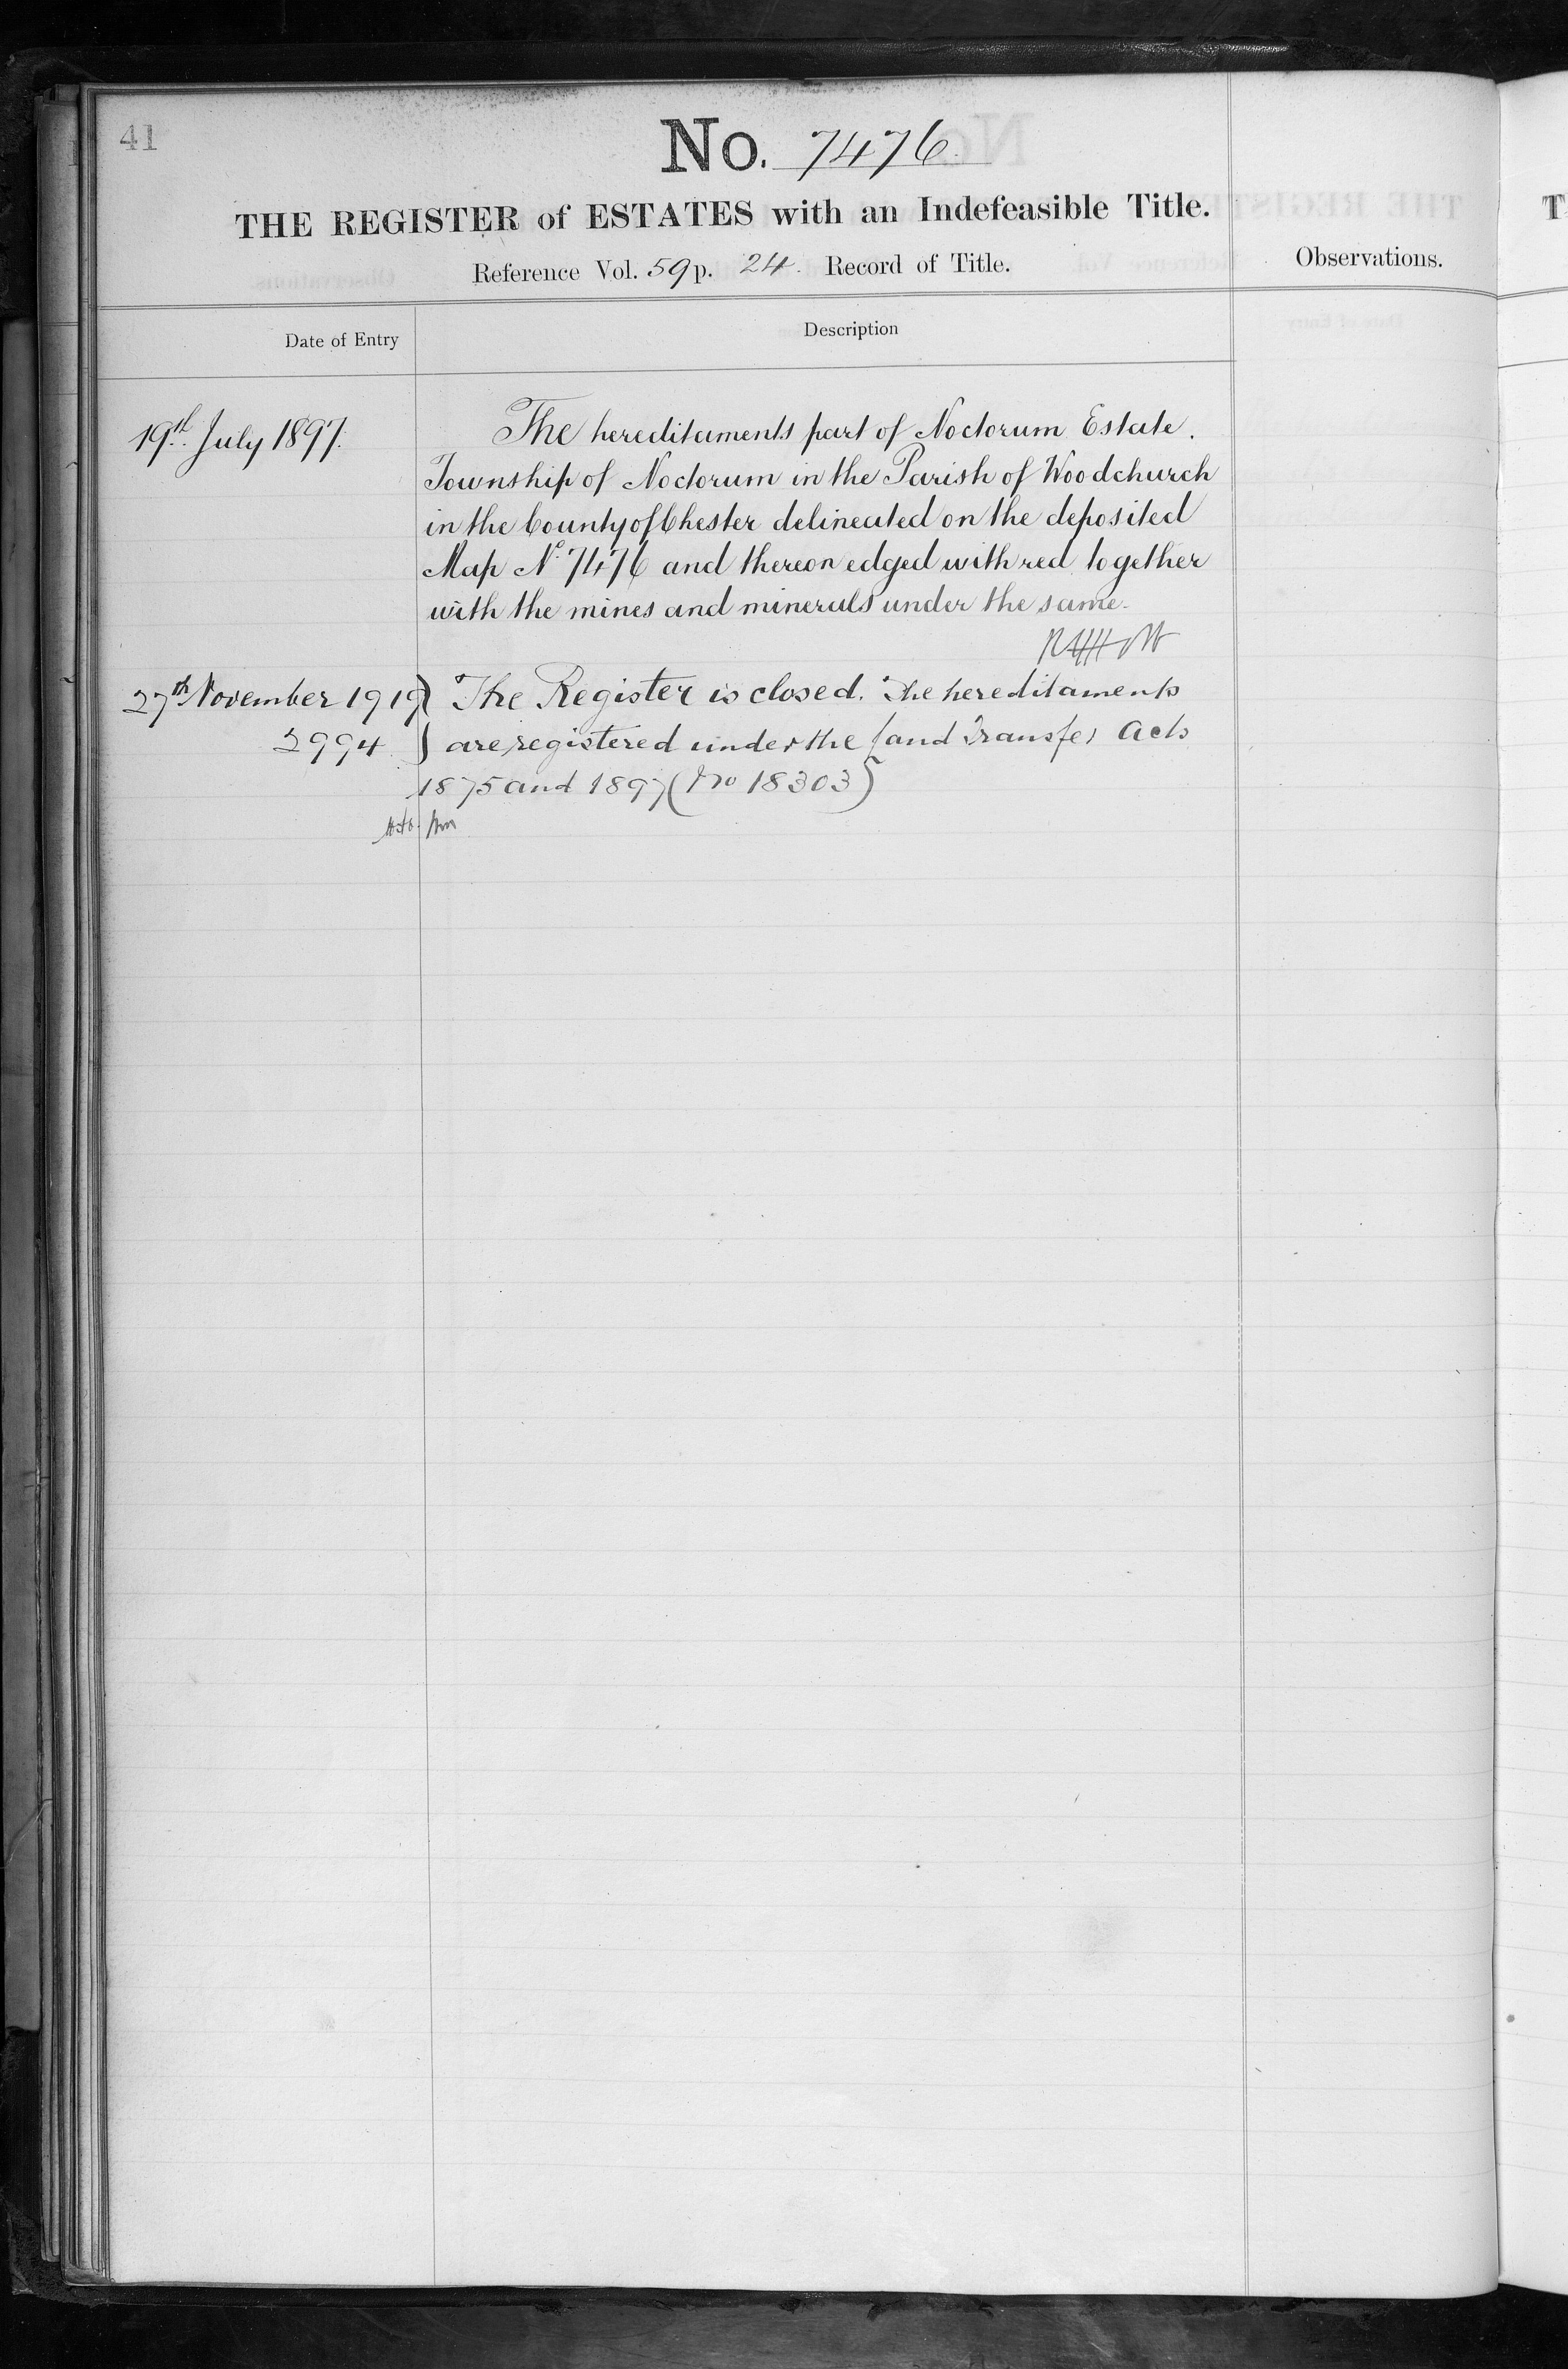 41
No. 7476.
THE REGISTER of ESTATES with an Indefeasible Title.
Reference Vol. 59 p. 24. Record of Title.
Observations.
Date of Entry
Description
19th. July 1897.
The hereditaments part of Noctorum Estate.
Township of Noctorum in the Parish of Woodchurch
in the County of Chester delineated on the deposited
Map No. 7476 and thereon edged with red together
with the mines and minerals under the same.
27th November 1919
2994
The Register is closed. The hereditaments
are registered under the Land Transfer Acts
1875 and 1897 (No 18303)